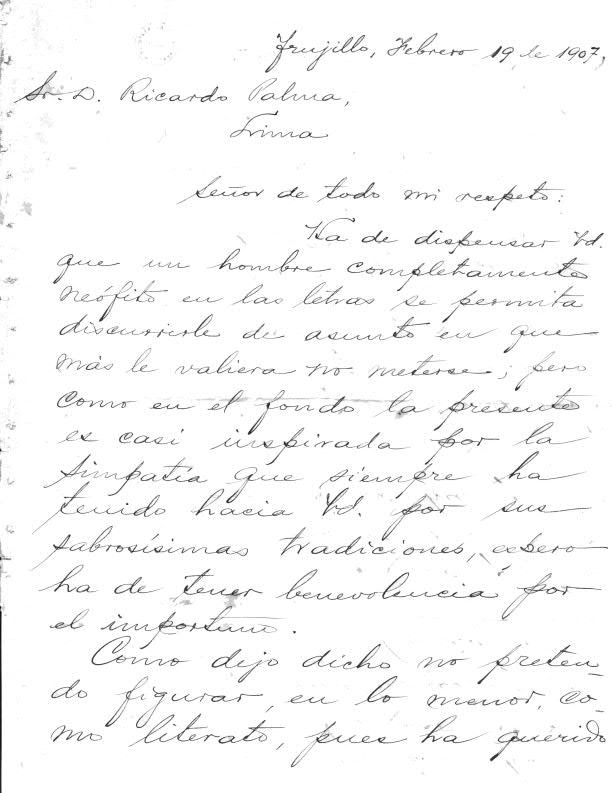 Trujillo, Febrero 19 de 1907,
Sr. D. Ricardo Palma,
Lima
Señor de todo mi respeto:
Ha de dispensar Vd.
que un hombre completamente
neófito en las letras se permita
discurrirle de asunto en que
más le valiera no meterse; pero
como en el fondo la presente
es casi inspirada por la
simpatía que siempre ha
tenido hacia Vd. por sus
sabrosísimas tradiciones, espero
ha de tener benevolencia por
el importuno.
Como dejo dicho no preten-
do figurar, en lo menor, co-
mo literato, pues ha querido